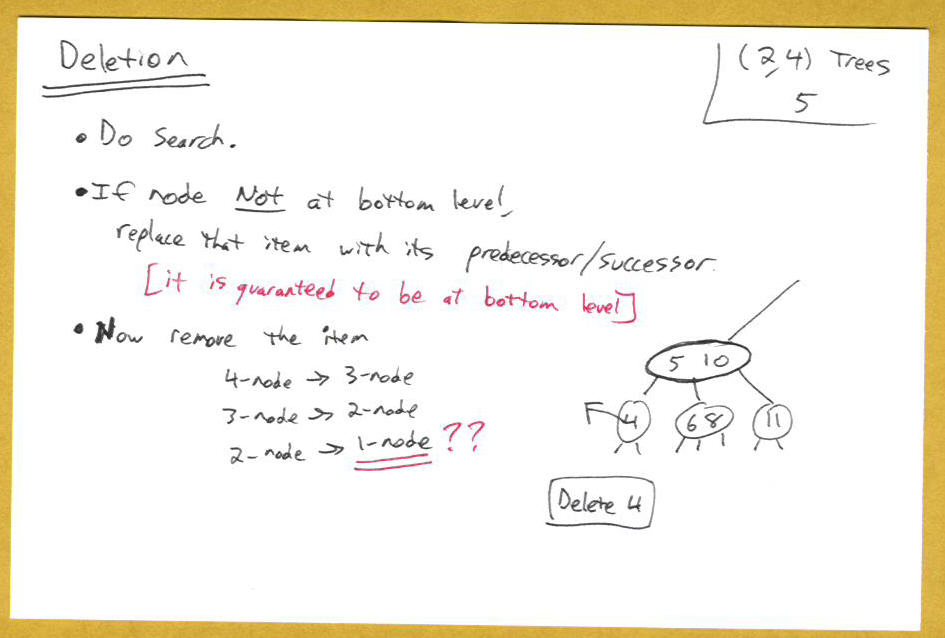 Deletion
(2,4) Trees
5
• Do Search.
• If node Not at bottom level,
replace that item with its predecessor/successor.
[it is guaranteed to be at bottom level]
• Now remove the item
4-node → 3-node
3-node → 2-node
2-node → 1-node ??
5 10
4 6 8 11
Delete 4